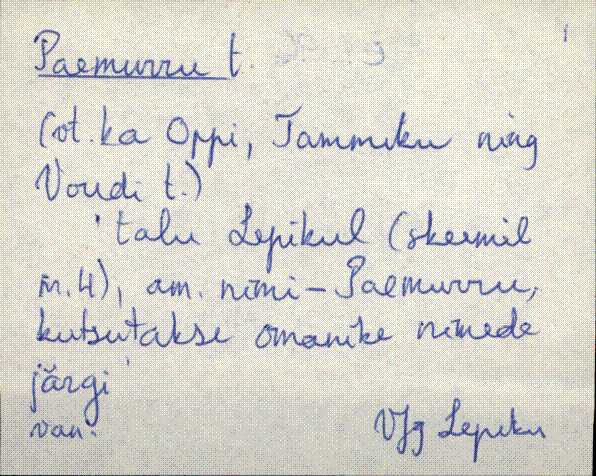 Paemurru t.
(vt. ka Oppi, Tammiku ning
Voudi t.)
talu Lepikul (skeemil
nr. 4), am. nimi - Paemurru,
kutsutakse omanike nimede
järgi
van. VJg Lepiku